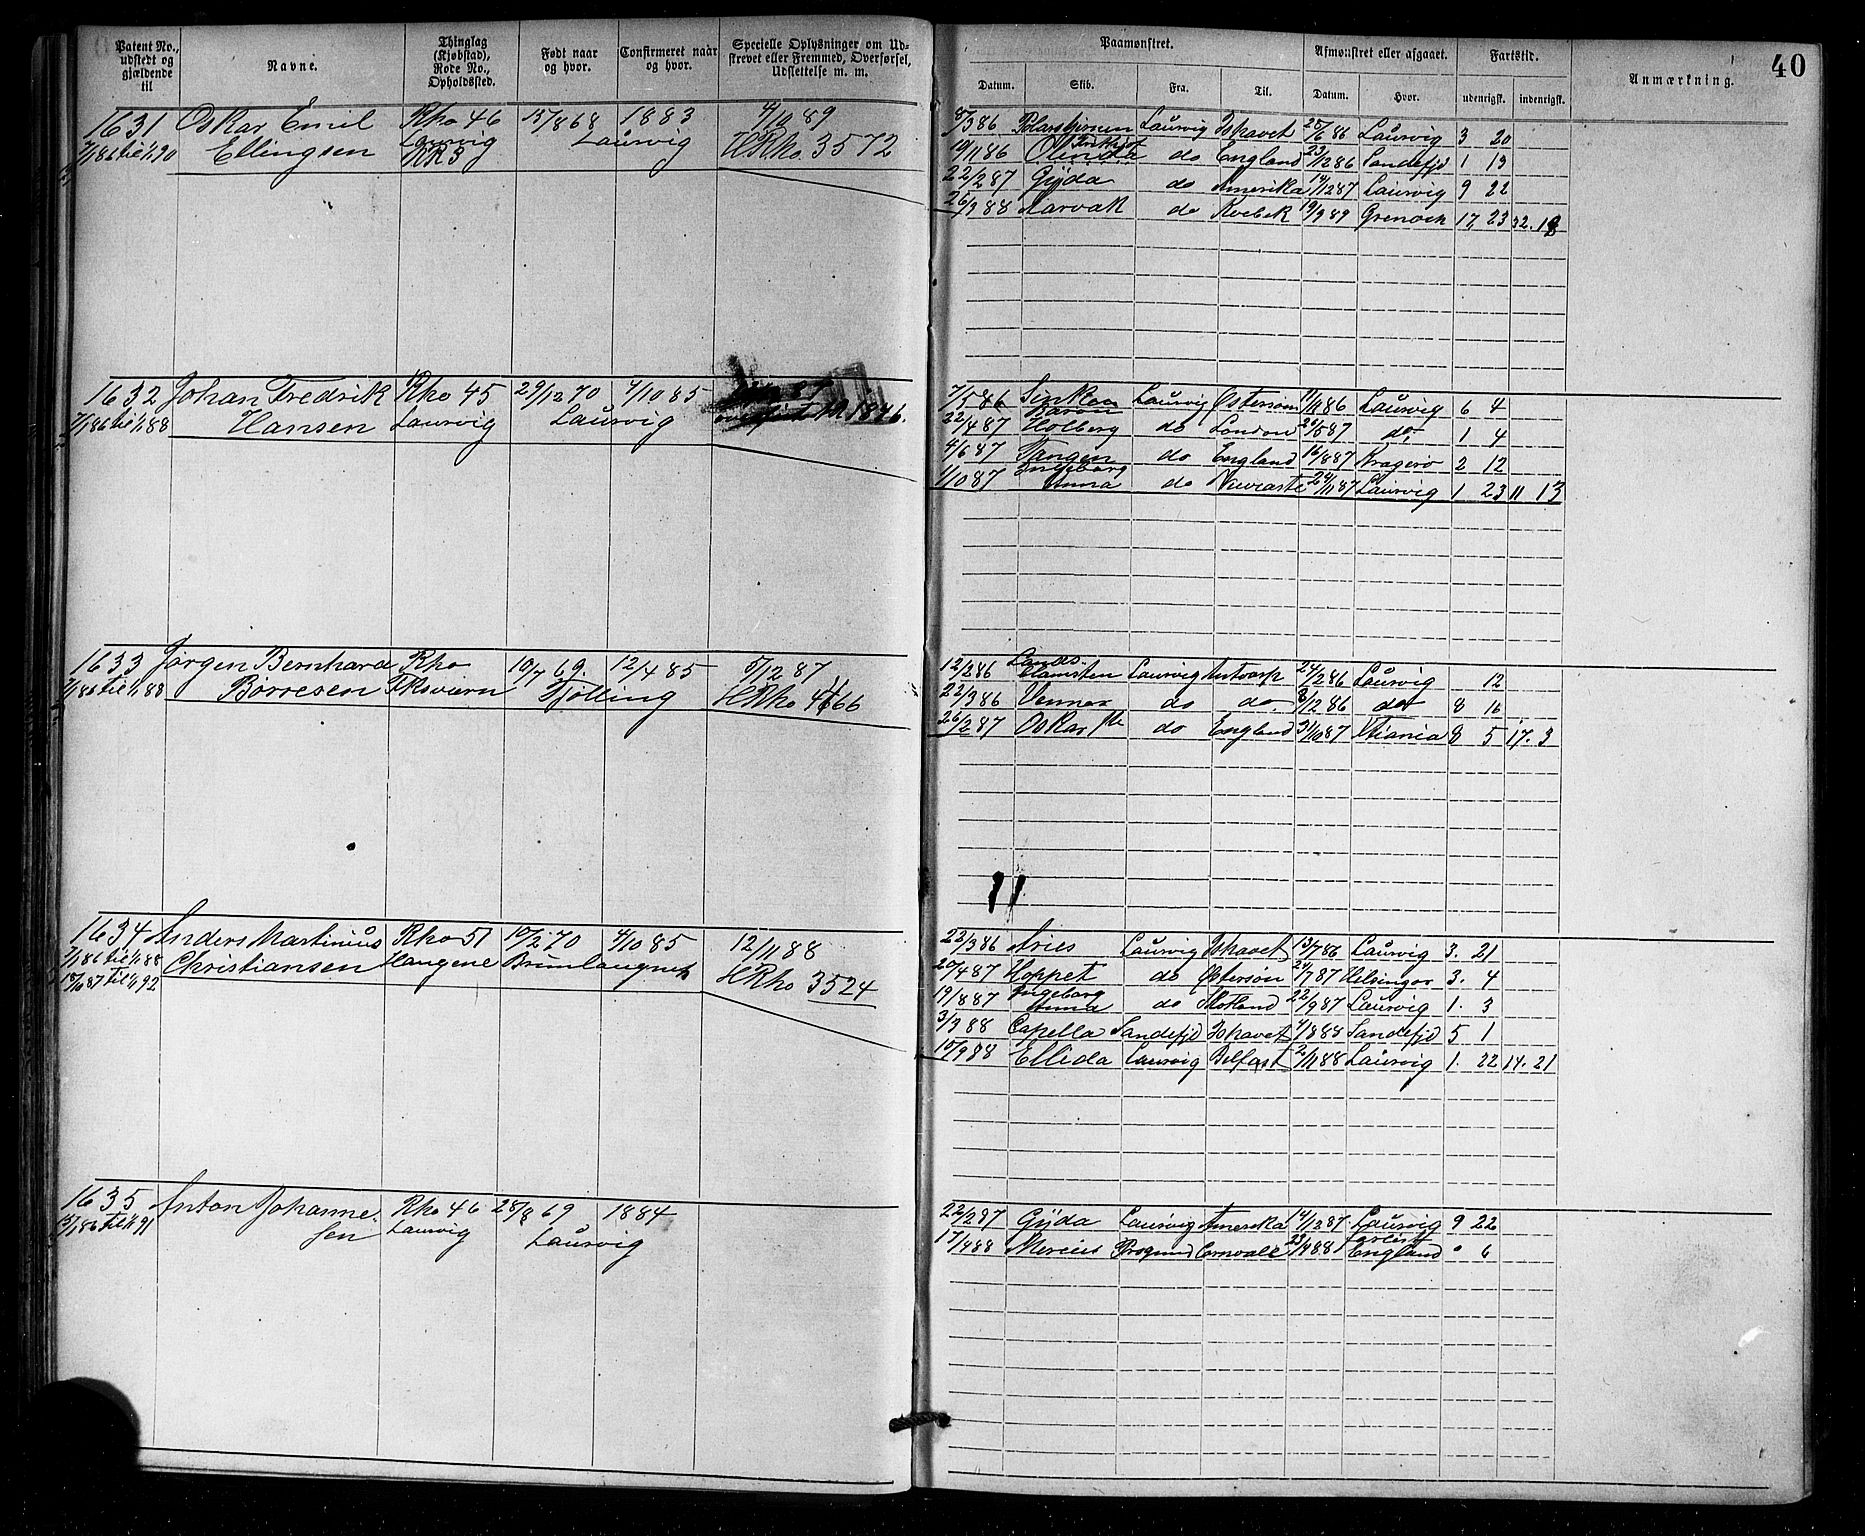 Patent No., udstedt og gjældende til
Navne.
Thinglag (Kjøbstad), Rode No., Opholdssted.
Født naar og hvor.
Confirmeret naar og hvor.
Specielle Oplysninger om Udstrevet eller Fremmed, Overførsel, Udslettelse m. m.
Paamønstret.
Datum. Skib. Fra. Til.
Afmønstret eller afgaaet.
Datum. Hvor.
Fartstid.
udenrigsk. indenrigsk.
Anmærkning.
40
1631 Oskar Emil Rho 46 15/8 68 1883 4/10 89
7/1 86 til 1/1 90 Ellingsen Laurvig Laurvig HRho. 3572
RR3
8/3 86 Polarstjernen Laurvig Ishavet 25/6 86 Laurvig 3 20
19/11 86 Olinda do England 23/12 86 Sandefjd 1 13
22/2 87 Gyda do Amerika 14/12 87 Laurvig 9 22
do 19/9 89 Grenock 17 23
1632 Johan Fredrik Rho 45 29/12 70 4/10 85
7/1 86 til 1/1 88 Hansen Laurvig Laurvig 1846.
7/5 86 Laurvig Østersøen 11/11 86 Laurvig 6 4
22/4 87 Holberg do London do. 1 4
4/6 87 Tangen do England 16/8 87 Kragerø 2 12
1/10 87 Ingeborg Anna do Newcastle 24/11 87 Laurvig 1 23 11 13
1633 Jørgen Bernhard Rho 10/7 69. 12/4 85 5/12 87
7/1 86 til 1/1 88 Børresen Fksværn Tjølling HRho
12/2 86 Laurvig Antverp 24/2 86 Laurvig 12
22/3 86 do do. 8/12 86 do 8 16
26/2 87 Oskar do England 31/10 87 Xtiania 8 5 17. 3
11
1634 Anders Martinius Rho 51 10/2 70 4/10 85 12/11 88
7/1 86 til 1/1 88 Christiansen Haugene Brunlaugnæs HRho 3524
18/10 87 til 1/1 92
22/3 86 Aries Laurvig Ishavet 13/7 86 Laurvig 3. 21
20/4 87 Hoppet do Østersøn 24/7 87 Helsingør 3. 4
19/8 87 Ingeborg Anna do Skotland 22/9 87 Laurvig 1. 3
3/3 88 Capella Sandefjd Ishavet 4/8 88 Sandefjd 5 1
10/9 88 Ellida Laurvig Belfast 2/11 88 Laurvig 1. 22 14. 21
1635 Anton Johanne- Rho 46 28/8 69 1884
13/1 86 til 1/1 91 sen Laurvig Laurvig
22/2 87 Gyda Laurvig Amerika 14/12 87. Laurvig 9 22
17/4 88 Cornwall 23/4 88 England " 6